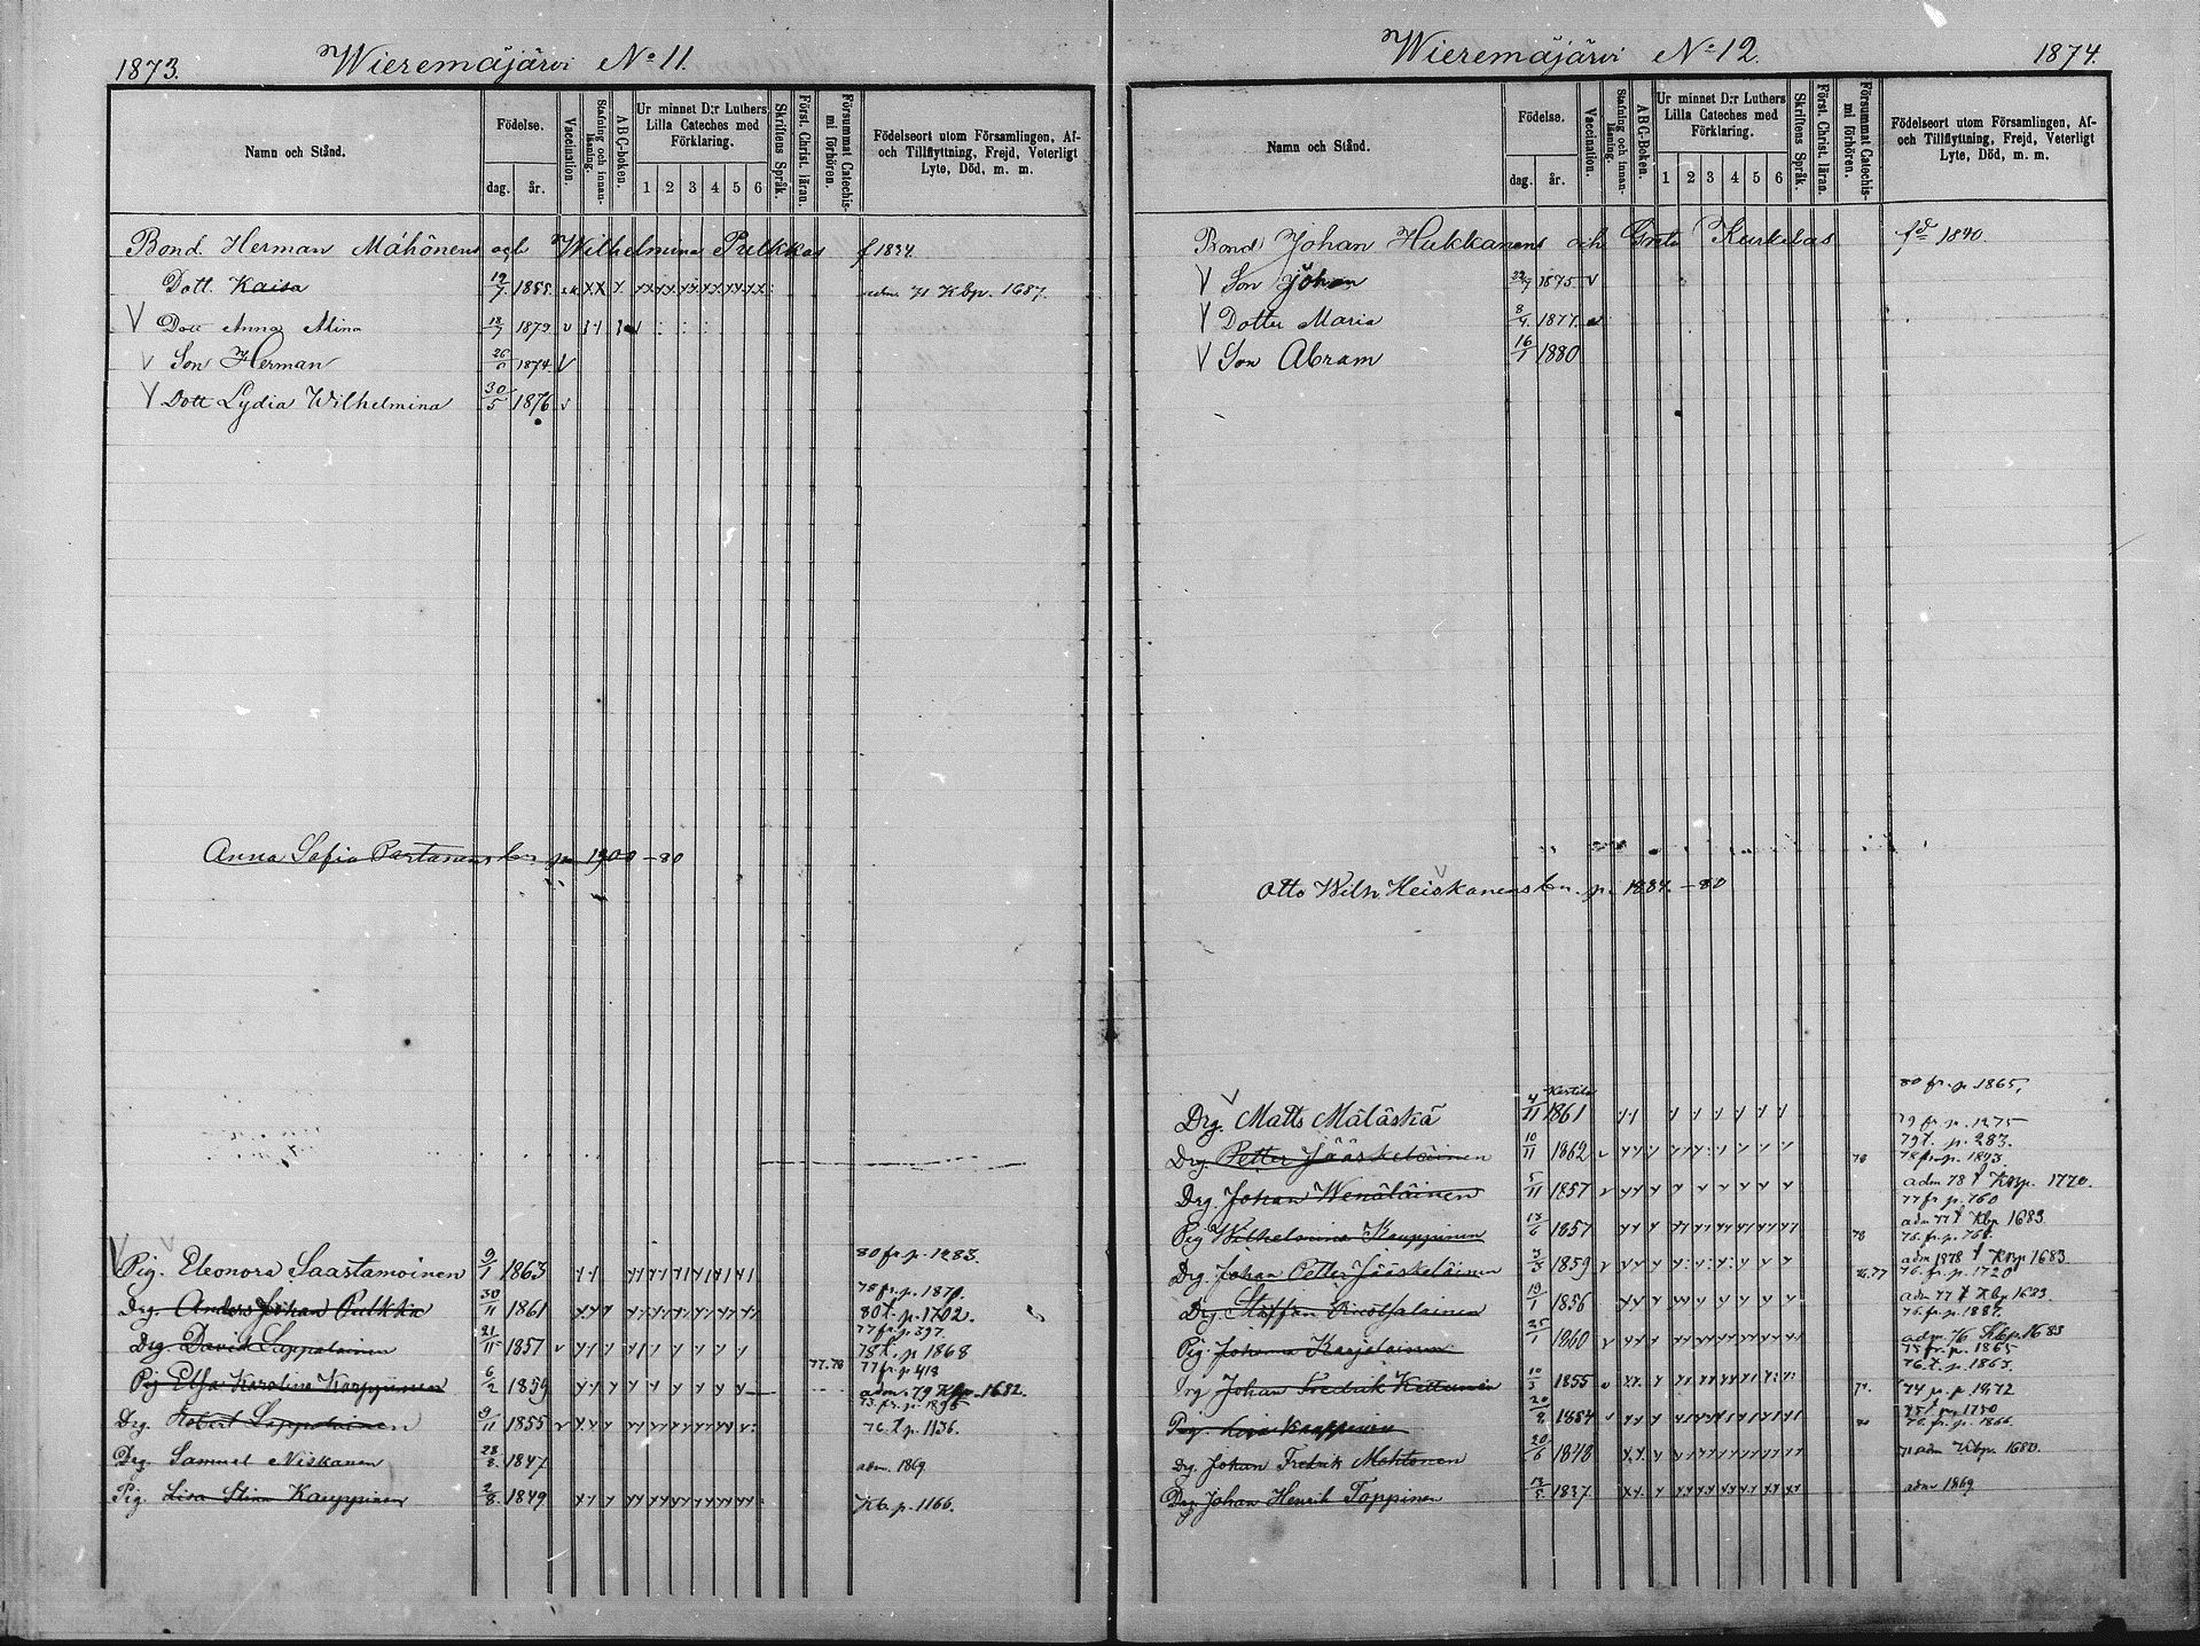 1873.
Wieremäjärvi No 11.
Namn och Stånd.
Födelse.
dag.
år.
Vaccination.
Stafning och innan-läsning.
ABC-boken.
Ur minnet D:r Luthers Lilla Cateches med Förklaring.
1 2 3 4 5 6
Skriftens Språk.
Först. Christ. läran.
Försummat Catechis-mi förhören.
Födelseort utom Församlingen, Af- och Tillflyttning, Frejd, Veterligt Lyte, Död, m. m.
Bond. Herman Mähönens och Wilhelmina Pulkkas f 1834.
Dott. Kaisa 19/7. 1855. adm. 71 Kbp. 1687.
Dott Anna Alina 18/7 1872.
Son Herman 1874.
Dott Lydia Wilhelmina 30/5 1876
Anna Sofia Partanens bn p. 1900 - 80
Pig. Eleonora Saastamoinen 9/1 1863 80 fr. p. 1283.
Drg. Anders Johan Pulkka 30/11 1861 80 t. p. 1702.
77 fr. p. 397.
Drg. David Lappalainen 21/11 1857 78 t. p 1868
77 fr. p 418
Pig Elsa Karolina Karppinen 6/2 1859 77.78 adm. 79 Kbp. 1682.
Drg. Robert Lappalainen 9/11 1855 76 t p. 1136.
Drg. Samuel Niskanen 28/8. 1847 adm. 1869
Pig. Lisa Stina Kauppinen 2/8. 1849 Kb. p. 1166.
Wieremäjärvi No 12.
1874.
Namn och Stånd.
Födelse.
dag.
år.
Vaccination.
Stafning och innan-läsning.
ABC-Boken.
Ur minnet D:r Luthers Lilla Cateches med Förklaring.
1 2 3 4 5 6
Skriftens Språk.
Först. Christ. läran.
Försummat Catechis-mi förhören.
Födelseort utom Församlingen, Af- och Tillflyttning, Frejd, Veterligt Lyte, Död, m. m.
Bond Johan Hukkanens och Greta Kurkelas fd 1840.
Son Johan 22/7 1875
Dotter Maria 8/4. 1877.
Son Abram 16/1 1880
Otto Wilh. Heiskanens bn. p. 1884. - 80
80 fr. p. 1865.
Drg. Matts Mäläskä 4/11 1861
79 fr. p. 1275
79 t. p. 283.
Drg. Petter Jääskeläinen 10/11 1862 78 78 fr. p. 1843
Drg. Johan Wenäläinen 5/11 1857 adm 78 t Kbp. 1770.
77 fr p. 760
Pig Wilhelmina Kauppinen 1857 78 adm 77 t Kbp 1683
Drg. Johan Petter Jääskeläinen 3/3 1859 76.77 adm 1878 t Kbp 1683
76. fr. p. 1720
Drg. Staffan 19/1 1856 adm 77 t Kbp 1683.
76. fr. p. 1887.
Pig. Johanna Karjalainen 25/1 1860 adm. 76 Kbp. 1683
75 fr. p. 1865
76. t. p. 1863.
Drg Johan Fredrik Kettunen 10/3 1855 74 p. p. 1872
Pig. Lisa Kauppinen 20/8 1854 75 t p. 1750
76. fr. p. 1866.
Drg. Johan Fredrik Mehtonen 20/6 1848 adm Kbp. 1680.
Drg. Johan Henrik Toppinen 13/5. 1837. adm 1869